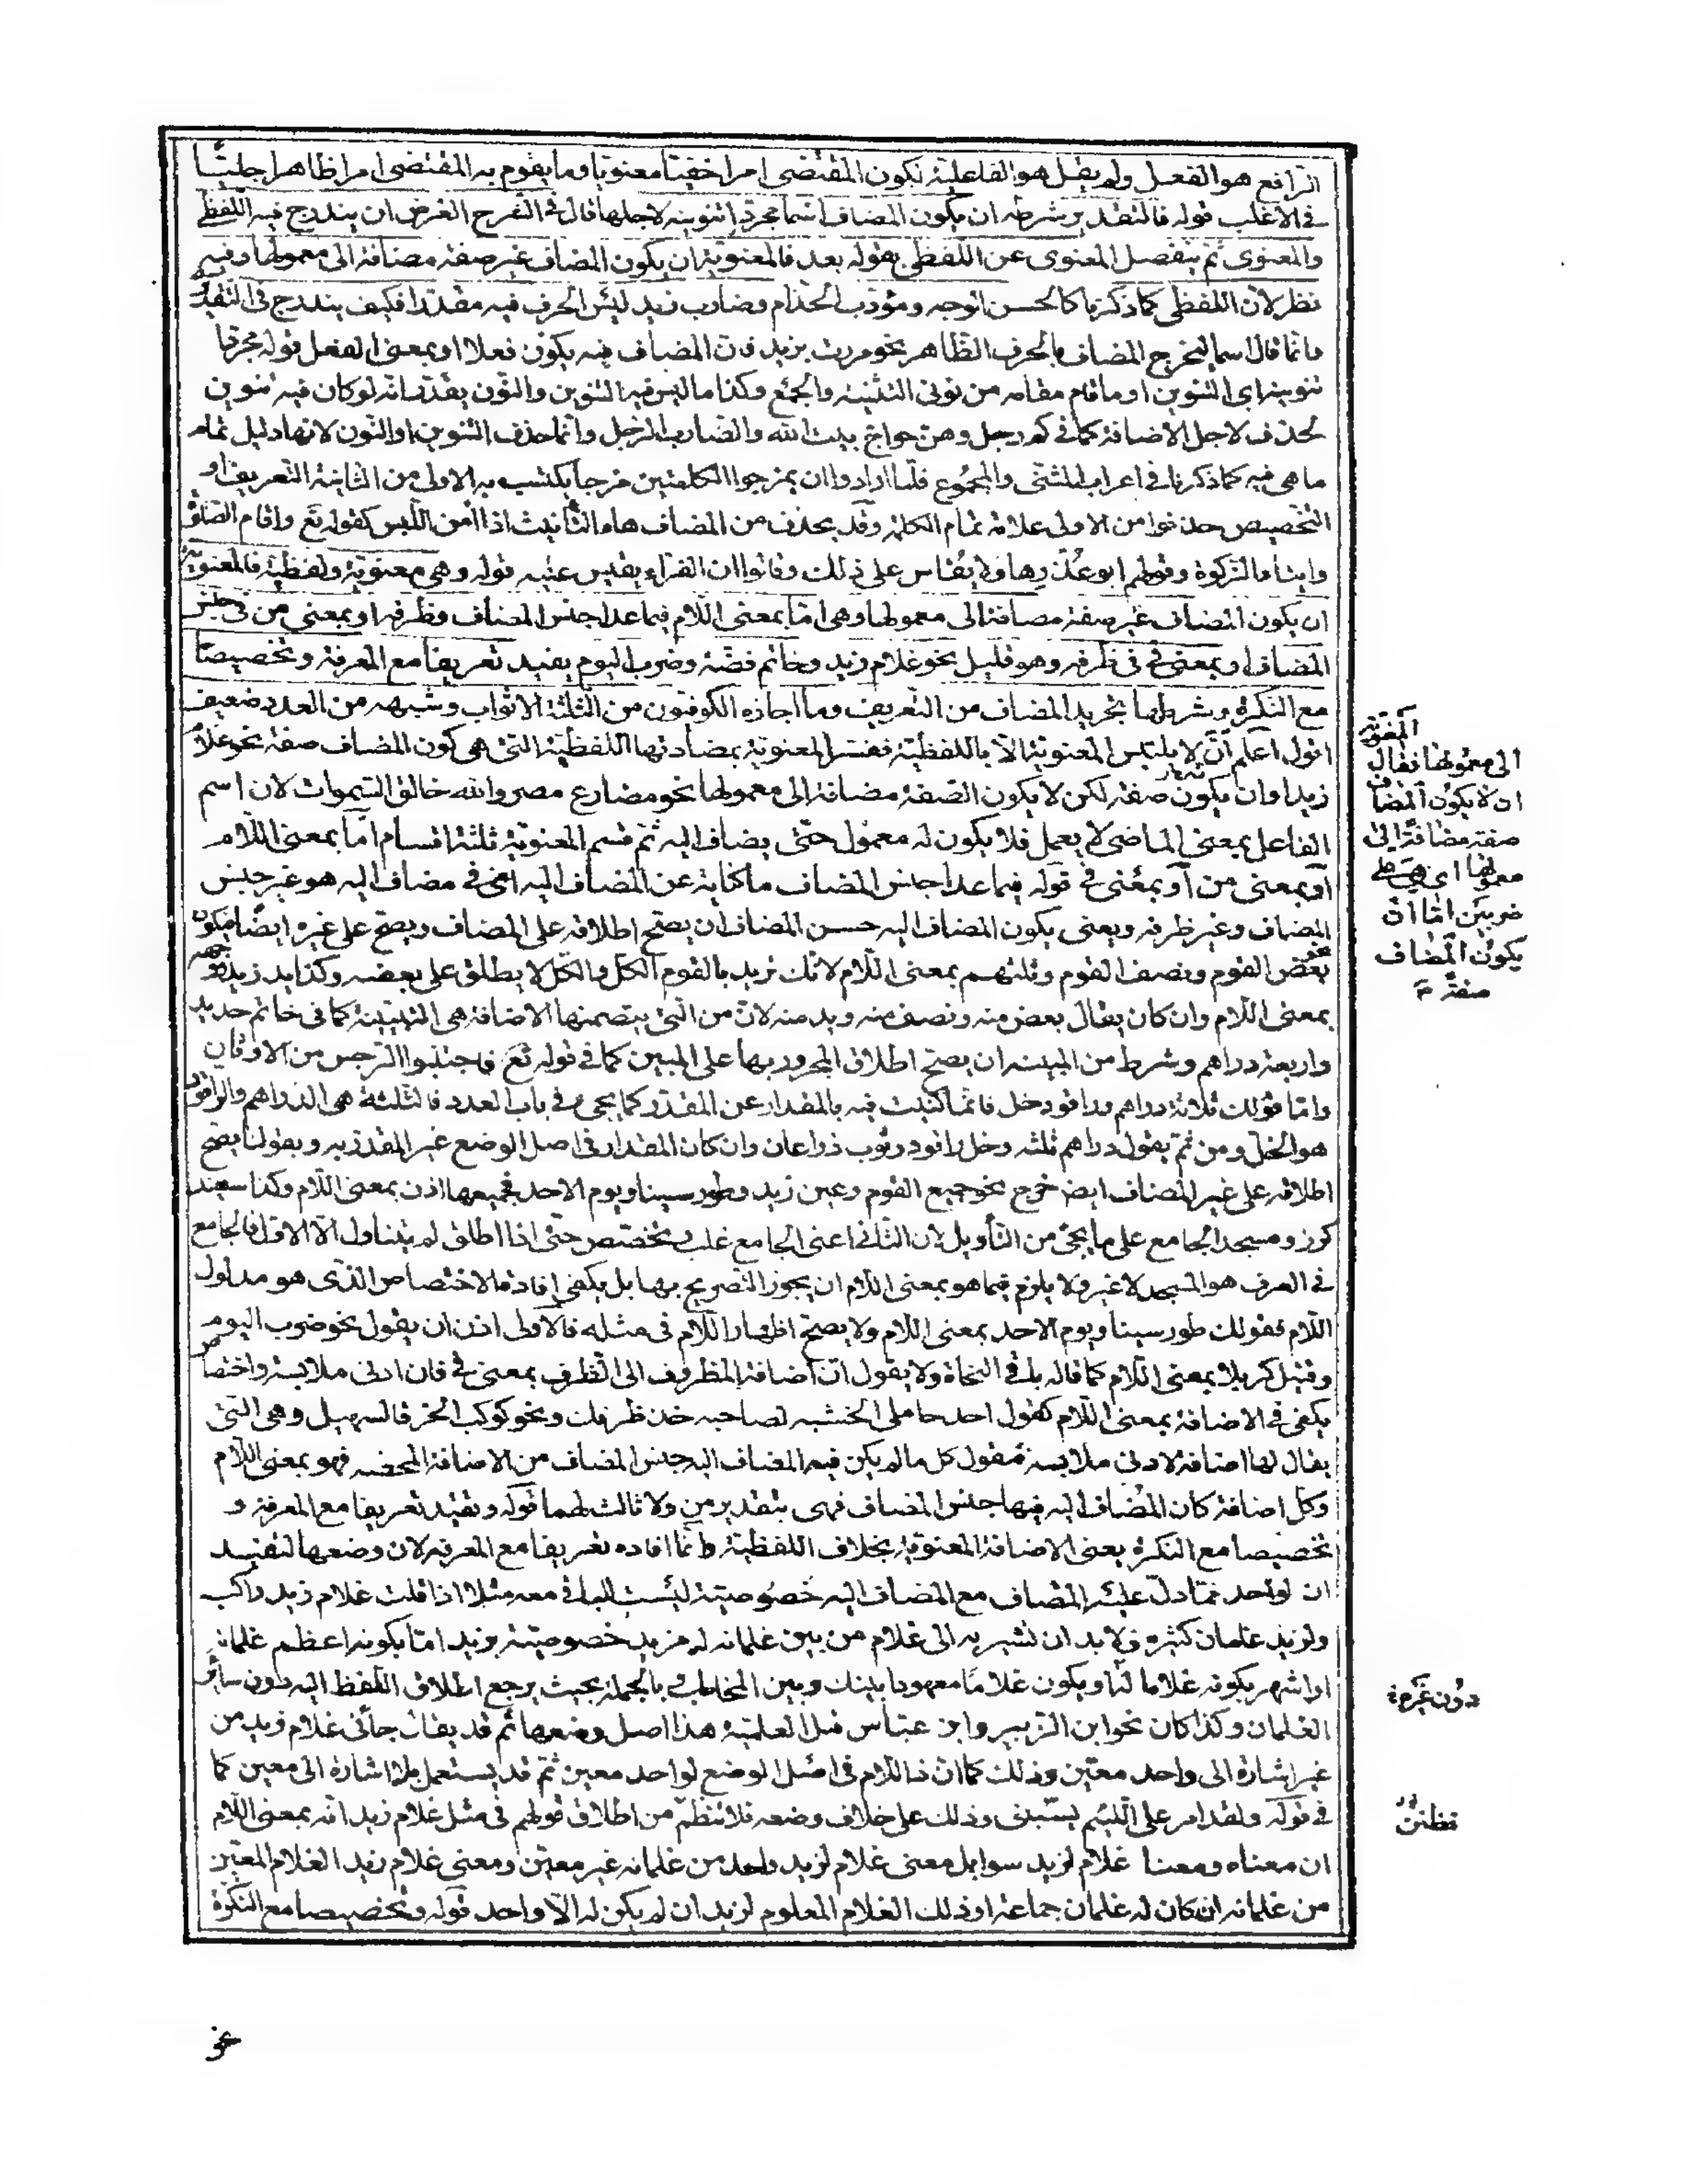 الرافع هو الفعل ولم يقل هو الفاعلية لكون المقتضى امرا خفيا معنويا وما يقوم به المقتضى امرا ظاهرا جليا
فى الاغلب قوله فالتقدير شرطه ان يكون المضاف اسما مجردا تنوينه لاجلها قال فى الشرح الغرض ان يندرج فيه اللفظى
والمعنوى ثم ينفصل المعنوى عن اللفظى بقوله بعد فالمعنوية ان يكون المضاف غير صفة مضافة الى معمولها وفيه
نظر لان اللفظى كما ذكرنا كالحسن الوجه ومؤدب الخدام وضارب زيد ليس الحرف فيه مقدرا فكيف يندرج فى التقدير
وانما قال اسما ليخرج المضاف بالحرف الظاهر نحو مررت بزيد فان المضاف فيه يكون فعلا او بمعنى الفعل قوله مجردا
تنوينه اى التنوين او ما قام مقامه من نونى التثنية والجمع وكذا ما ليس فيه التنوين والنون يقدر انه لو كان فيه تنوين
لحذف لاجل الاضافة كما فى كم رجل وهن حواج بيت الله والضارب الرجل وانما حذف التنوين او النون لانها دليل تمام
ما هى فيه كما ذكرنا فى اعراب المثنى والمجموع فلما ارادوا ان يمزجوا الكلمتين مزجا يكتسب به الاولى من الثانية التعريف او
التخصيص حذفوا من الاولى علامة تمام الكلمة وقد يحذف من المضاف هاء التأنيث اذا امن اللبس كقوله تع واقام الصلوة
وايتاء الزكوة وقولهم ابو عذرها ولا يقاس على ذلك وقالوا ان الفراء يقيس عليه قوله وهى معنوية ولفظية فالمعنوية
ان يكون المضاف غير صفة مضافة الى معمولها وهى اما بمعنى اللام فيما عدا جنس المضاف وظرفه او بمعنى من فى جنس
المضاف او بمعنى فى فى ظرفه وهو قليل نحو غلام زيد وخاتم فضة وضرب اليوم يفيد تعريفا مع المعرفة وتخصيصا
مع النكرة وشرطها تجريد المضاف من التعريف وما اجازه الكوفيون من الثلثة الاثواب وشبهه من العدد ضعيف
اقول اعلم ان لا يلتبس المعنوية الا باللفظية ففسر المعنوية بمضادتها اللفظية التى هى كون المضاف صفة نحو غلام
زيد او ان يكون صفة لكن لا يكون الصفة مضافة الى معمولها نحو مضارع مصر والله خالق السموات لان اسم
الفاعل بمعنى الماضى لا يعمل فلا يكون له معمول حتى يضاف اليه ثم قسم المعنوية ثلثة اقسام اما بمعنى اللام
او بمعنى من او بمعنى فى قوله فيما عدا جنس المضاف ما كناية عن المضاف اليه اى فى مضاف اليه هو غير جنس
المضاف وغير ظرفه ويعنى بكون المضاف اليه جنس المضاف ان يصح اطلاقه على المضاف ويصح على غيره ايضا فيكون
بعض القوم ونصف القوم وثلثهم بمعنى اللام لانك تريد بالقوم الكل والكل لا يطلق على بعضه وكذا يد زيد ووجهه
بمعنى اللام وان كان يقال بعض منه ونصف منه ويد منه لان من التى يتضمنها الاضافة هى التبيينية كما فى خاتم حديد
واربعة دراهم وشرط من المبينة ان يصح اطلاق المجرور بها على المبين كما فى قوله تع فاجتنبوا الرجس من الاوثان
واما قولك ثلاثة دراهم وراقود خل فانما اكتفيت فيه بالمقدار عن المقدر كما يجىء فى باب العدد فالثلثة هى الدراهم والراقود
هو الخل ومن ثم يقول دراهم ثلثه وخل راقود وثوب ذراعان وان كان المقدار فى اصل الوضع غير المقدر به وبقولنا يصح
اطلاقه على غير المضاف ايض خرج نحو جميع القوم وعين زيد وطور سينا ويوم الاحد فجميعها اذن بمعنى اللام وكذا سعيد
كرز ومسجد الجامع على ما يجئ من التأويل لان الثانى اعنى الجامع غلب وتخصص حتى اذا اطلق لم يتناول الا الاول فالجامع
فى العرف هو المسجد لا غير ولا يلزم فيما هو بمعنى اللام ان يجوز التصريح بها بل يكفى افادة الاختصاص الذى هو مدلول
اللام فقولك طور سينا ويوم الاحد بمعنى اللام ولا يصح اظهار اللام فى مثله فالاولى اذن ان يقول نحو ضرب اليوم
وقتيل كربلا بمعنى اللام كما قاله باقى النحاة ولا يقول ان اضافة المظروف الى الظرف بمعنى فى فان ادنى ملابسة واختصاص
يكفى فى الاضافة بمعنى اللام كقول احد حاملى الخشبه لصاحبه خذ طرفك ونحو كوكب الخرقا لسهيل وهى التى
يقال لها اضافة لادنى ملابسة فنقول كل ما لم يكن فيه المضاف اليه جنس المضاف من الاضافة المحضه فهو بمعنى اللام
وكل اضافة كان المضاف اليه فيها جنس المضاف فهى بتقدير من ولا ثالث لهما قوله وتفيد تعريفا مع المعرفة و
تخصيصا مع النكرة يعنى الاضافة المعنوية بخلاف اللفظية وانما افاده تعريفا مع المعرفه لان وضعها لتفيد
ان لواحد مما دل عليه المضاف مع المضاف اليه خصوصية ليست للباقى معه مثلا اذا قلت غلام زيد راكب
ولزيد غلمان كثيره فلابد ان تشير به الى غلام من بين غلمانه له مزيد خصوصية بزيد اما بكونه اعظم غلمانه
او اشهر بكونه غلاما له او يكون غلاما معهودا بينك وبين المخاطب وبالجملة بحيث يرجع اطلاق اللفظ اليه دون سائر
الغلمان وكذا كان نحو ابن الزبير وابن عباس قبل العلمية هذا اصل وضعها ثم قد يقال جائنى غلام زيد من
غير اشارة الى واحد معين وذلك كما ان ذا اللام فى اصل الوضع لواحد معين ثم قد يستعمل بلا اشارة الى معين كما
فى قوله ولقد امر على اللئيم يسبنى وذلك على خلاف وضعه فلا تظن من اطلاق قولهم فى مثل غلام زيد انه بمعنى اللام
ان معناه ومعنا غلام لزيد سوا بل معنى غلام لزيد واحد من غلمانه غير معين ومعنى غلام زيد الغلام المعين
من غلمانه ان كان له غلمان جماعة او ذلك الغلام المعلوم لزيد ان لم يكن له الا واحد قوله وتخصيصا مع النكرة
الى معمولها فقال
ان لا يكون المضاف
صفة مضافة الى
معمولها اى هى على
ضربين اما ان
يكون المضاف
صفة
دون غيره
تظنن
نحو